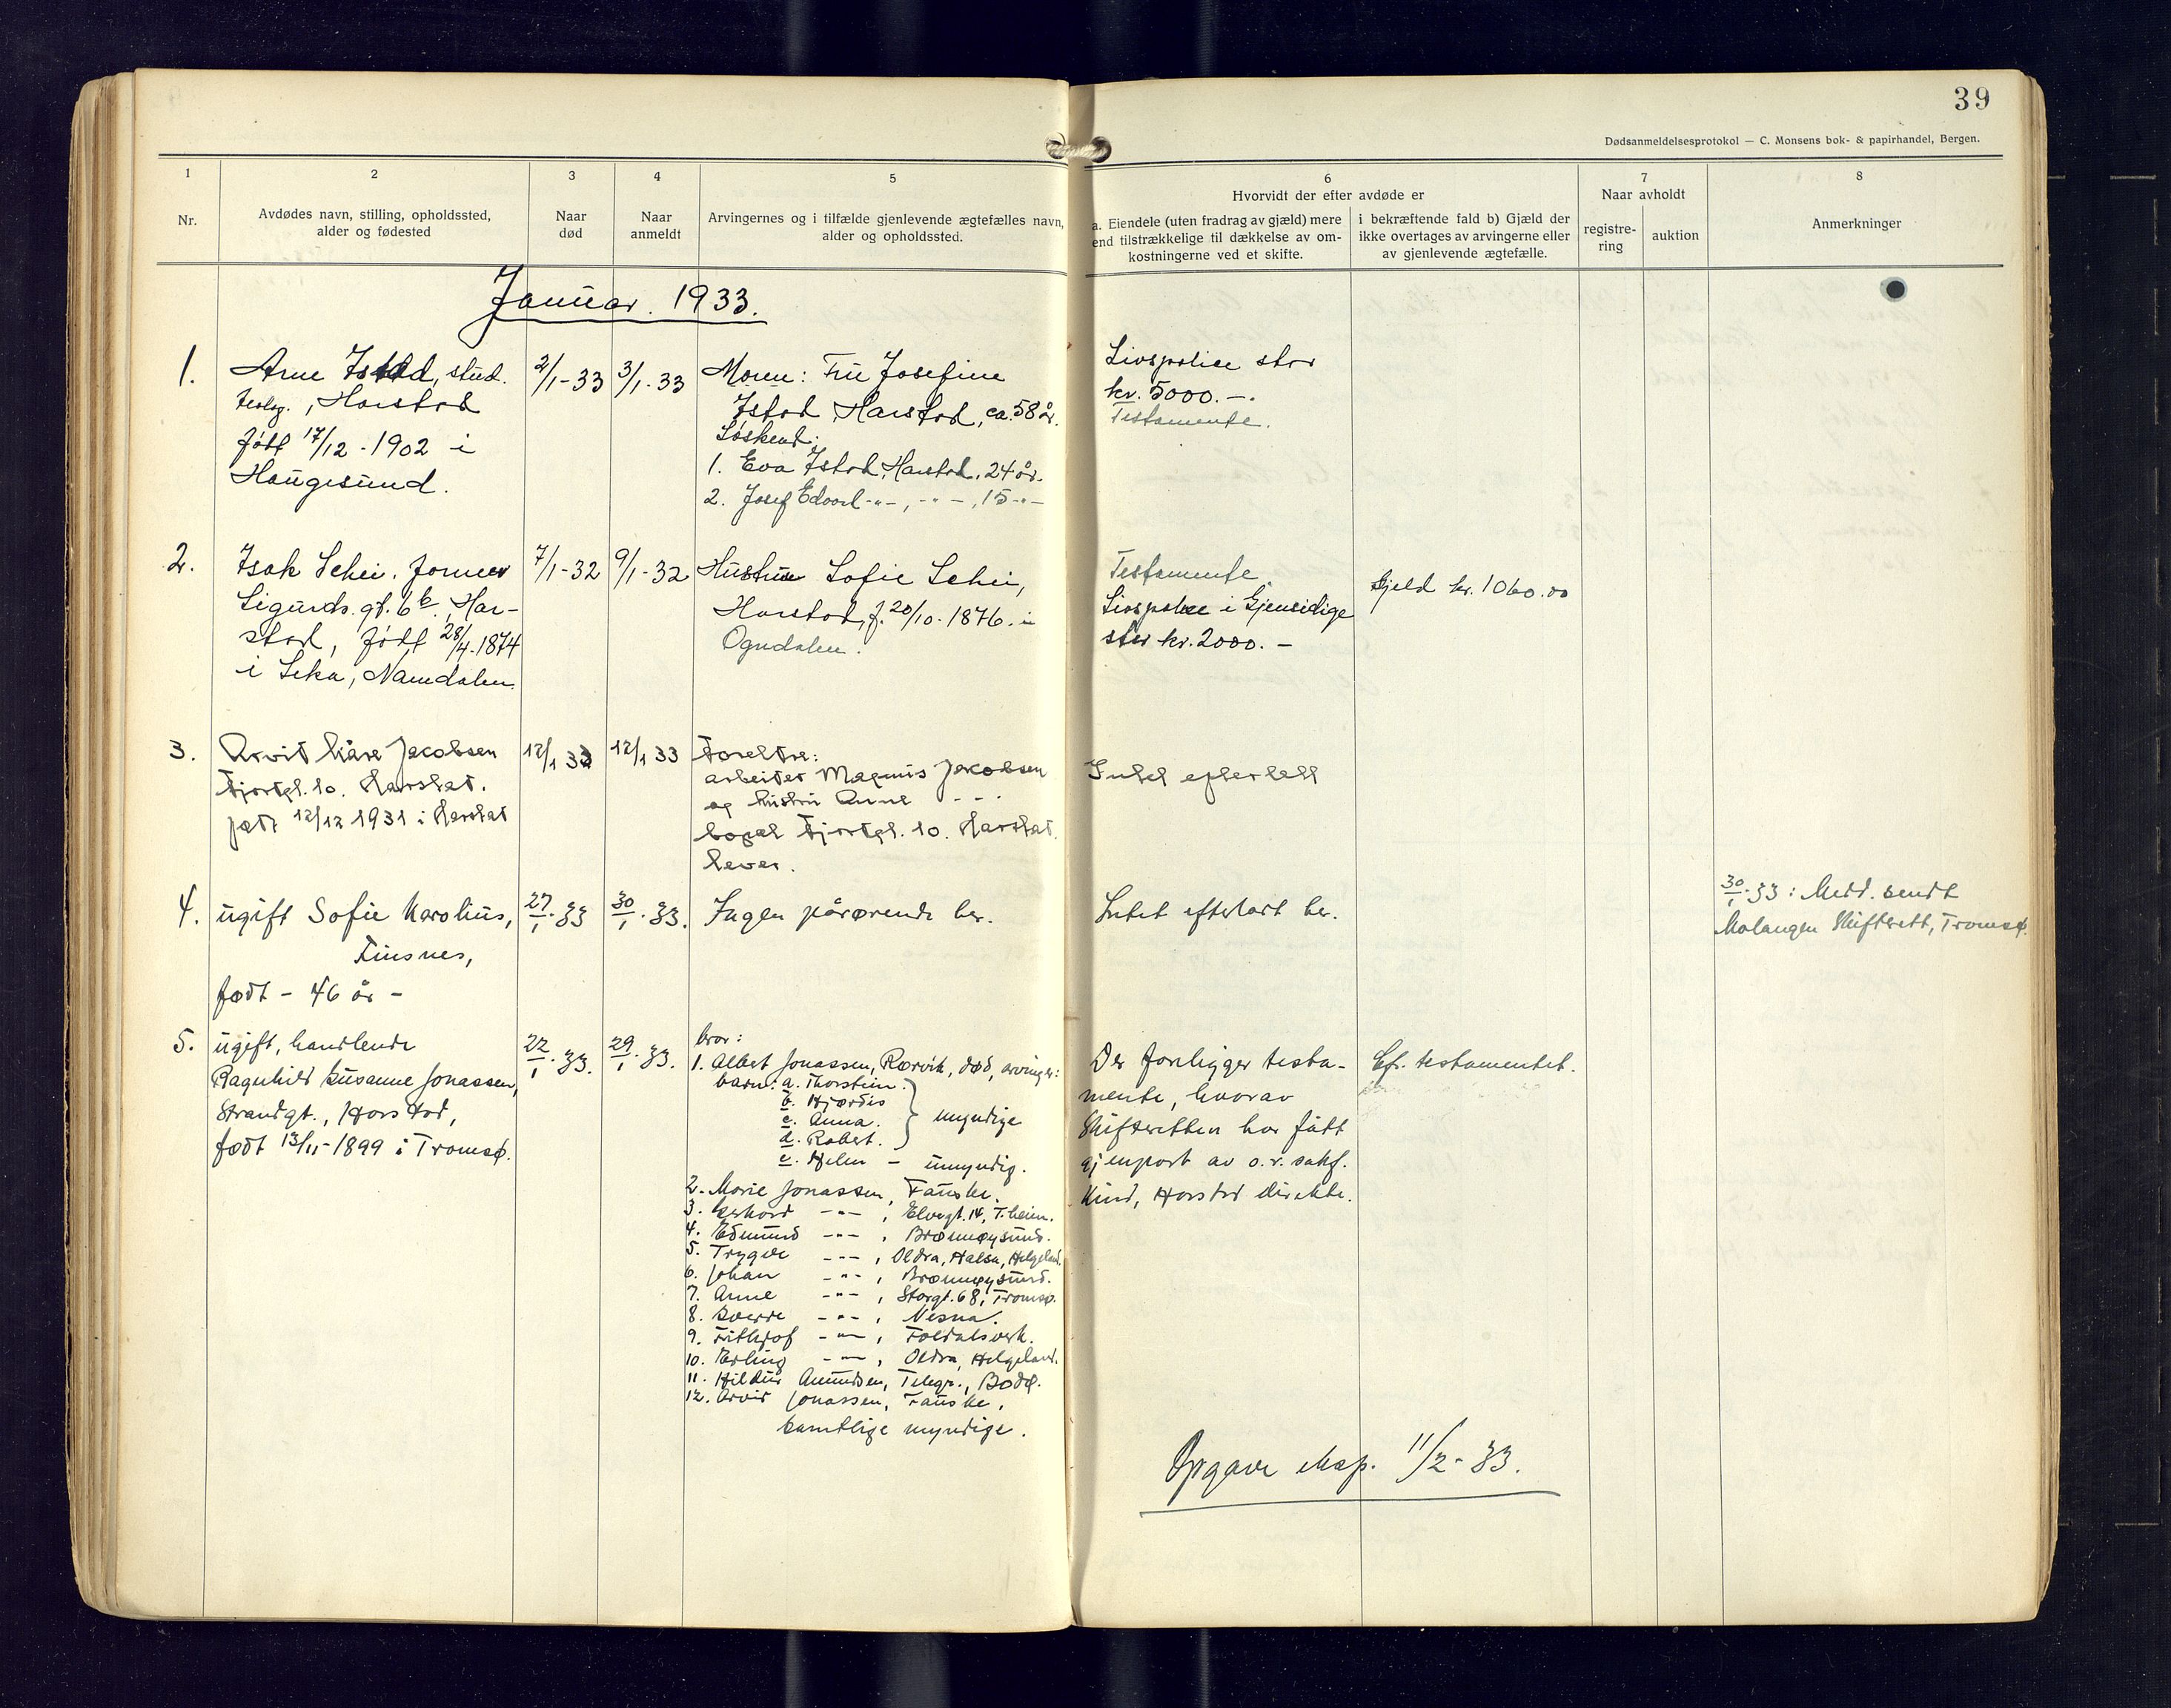 39
Dødsanmeldelsesprotokol — C. Monsens bok- & papirhandel, Bergen.
1
Nr.
2
Avdødes navn, stilling, opholdssted,
alder og fødested
3
Naar
død
4
Naar
anmeldt
5
Arvingernes og i tilfælde gjenlevende ægtefælles navn,
alder og opholdssted.
6
Hvorvidt der efter avdøde er
a. Eiendele (uten fradrag av gjæld) mere
end tilstrækkelige til dækkelse av om-
kostningerne ved et skifte.
i bekræftende fald b) Gjæld der
ikke overtages av arvingerne eller
av gjenlevende ægtefælle.
7
Naar avholdt
registre-
ring
auktion
8
Anmerkninger
Januar. 1933.
1.
Arne Istad, stud.
teolog., Harstad
født 17/12 - 1902 i
Haugesund.
2/1-33
3/1-33
Moren: Fru Josefine
Istad, Harstad, ca. 58 år.
Søskend:
1. Eva Istad, Harstad, 24 år.
2. Josef Edvard -"-, -"-, 15 -"-
Livspolice stor
kr. 5000.-.
Testamente.
2.
Isak Schei.
Sigurds gt. 6b, Har-
stad, født 28/4-1874
i Leka, Namdalen.
7/1-32
9/1-32
Hustru Sofie Schei,
Harstad, f. 20/10-1876 i
Ogndalen.
Testamente.
Livspolice i Gjensidige
stor kr. 2000.-
Gjeld kr. 1060.00
3.
Arvit Kåre Jacobsen
Fjordgt. 10. Harstat.
født 12/12 1931 i Harstat
12/1 33
12/1 33
Foreldre:
arbeider Magnus Jakobsen
og hustru Anne -"-
bopel Fjordgt. 10. Harstat.
lever.
Intet efterlatt
4.
ugift Sofie Karolius,
Finsnes,
født - 46 år -
27/1-33
30/1-33.
Ingen pårørende her.
Intet efterlatt her.
30/1-33: Medd. sendt
Malangen Skifterett, Tromsø.
5.
ugift, handlende
Ragnhild Susanne Jonassen,
Strandgt., Harstad,
født 13/11-1899 i Tromsø.
22/1-33.
29/1-33.
bror:
1. Albert Jonassen, Rørvik, død, arvinger:
barn: a. Thorstein.
b. Hjørdis
c. Anna.
d. Robert.
myndige
e. Helen - umyndig.
2. Marie Jonassen, Fauske.
3. Gerhard -"-, Elvegt. 14, T.heim.
4. Edmund -"-, Brønnøysund.
5. Trygve -"-, Oldra, Halsa, Helgeland.
6. Johan -"-, Brønnøysund.
7. Anne -"-, Storgt. 68, Tromsø.
8. Sverre -"-, Nesna.
9. Fithjof -"-, Foldalsverk.
10. Erling -"-, Oldra, Helgeland.
11. Hildur Amundsen, Telegr., Bodø.
12. Arvid Jonassen, Fauske,
samtlige myndige.
Der foreligger testa-
mente, hvorav
Skifteretten har fått
gjenpart av o.r. sakf.
Kind, Harstad direkte.
Cfr. testamentet.
Opgave eksp. 11/2-33.